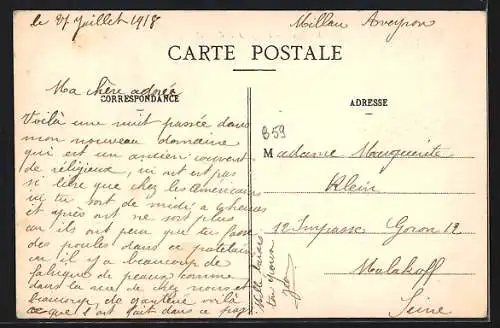 le 27 Juillet 1918
Millau Aveyron
CARTE POSTALE
Ma chère adorée
CORRESPONDANCE
Voilà une nuit passée dans
mon nouveau domaine
qui est un ancien couvent
de religieux, ici ont est pas
si libre que chez les Américains
ici tu sort de midi a heures
et après ont ne sort plus
ils ont peur que tu fasse
des poules dans ce patelin
ici il y a beaucoup de
fabriques de peaux comme
dans la rue de chez nous et
beaucoup de ganterie voilà
ce que l'ont fait dans ce pays
Mille baisers
ton époux
ADRESSE
859
Madame Marguerite
Klein
12 Impasse Goron 12
Malakoff
Seine